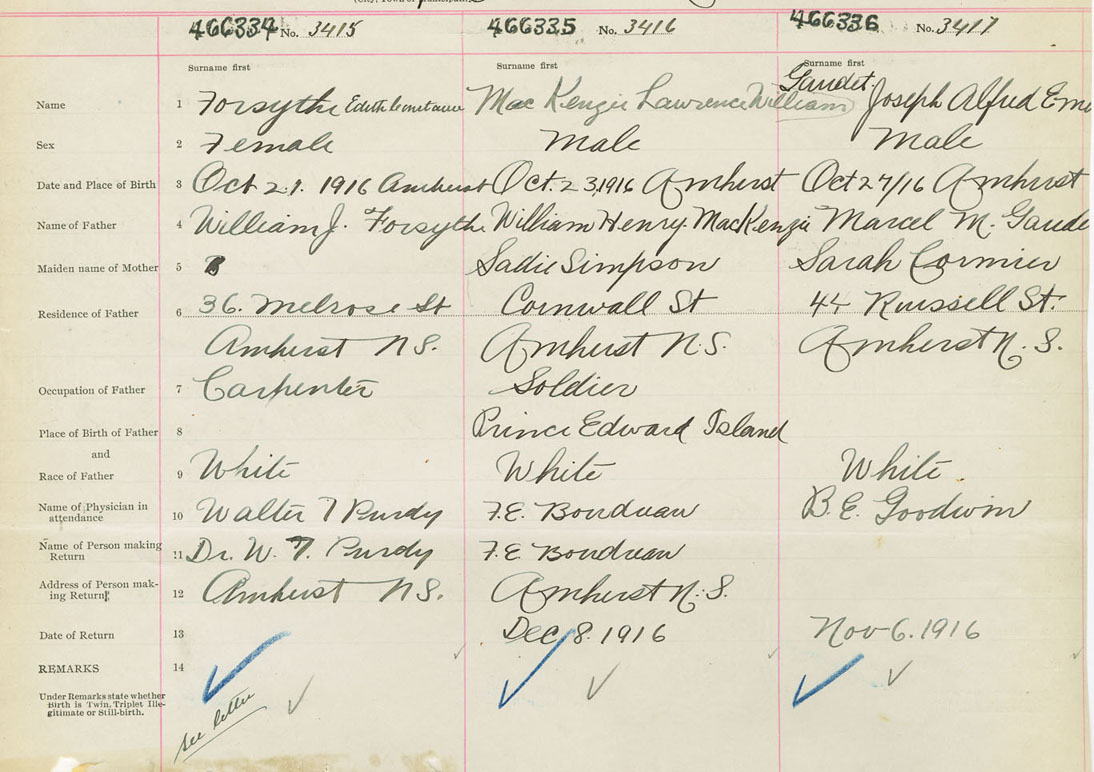 466334 No. 3415 466335 No. 3416 466336 No. 3417
Surname first Surname first Surname first
Gaudet
Name 1 Forsythe Edith Constance Mac Kenzie Lawrence William Joseph Alfred
Sex 2 Female Male Male
Date and Place of Birth 3 Oct 21. 1916 Amherst Oct. 23, 1916 Amherst Oct 27/16 Amherst
Name of Father 4 William J. Forsythe William Henry MacKenzie Marcel M. Gaude
Maiden name of Mother 5 Sadie Simpson Sarah Cormier
Residence of Father 6 36. Melrose St Cornwall St 44 Russell St.
Amherst N.S. Amherst N.S. Amherst N.S.
Occupation of Father 7 Carpenter Soldier
Place of Birth of Father 8 Prince Edward Island
and
Race of Father 9 White White White
Name of Physician in
attendance 10 Walter T Purdy F.E. Boudreau B.E. Goodwin
Name of Person making
Return 11 Dr. W. T. Purdy F.E Boudreau
Address of Person mak-
ing Return 12 Amherst N.S. Amherst N.S.
Date of Return 13 Dec 8. 1916 Nov 6. 1916
REMARKS 14
Under Remarks state whether
Birth is Twin, Triplet Ille-
gitimate or Still-birth.
see letter